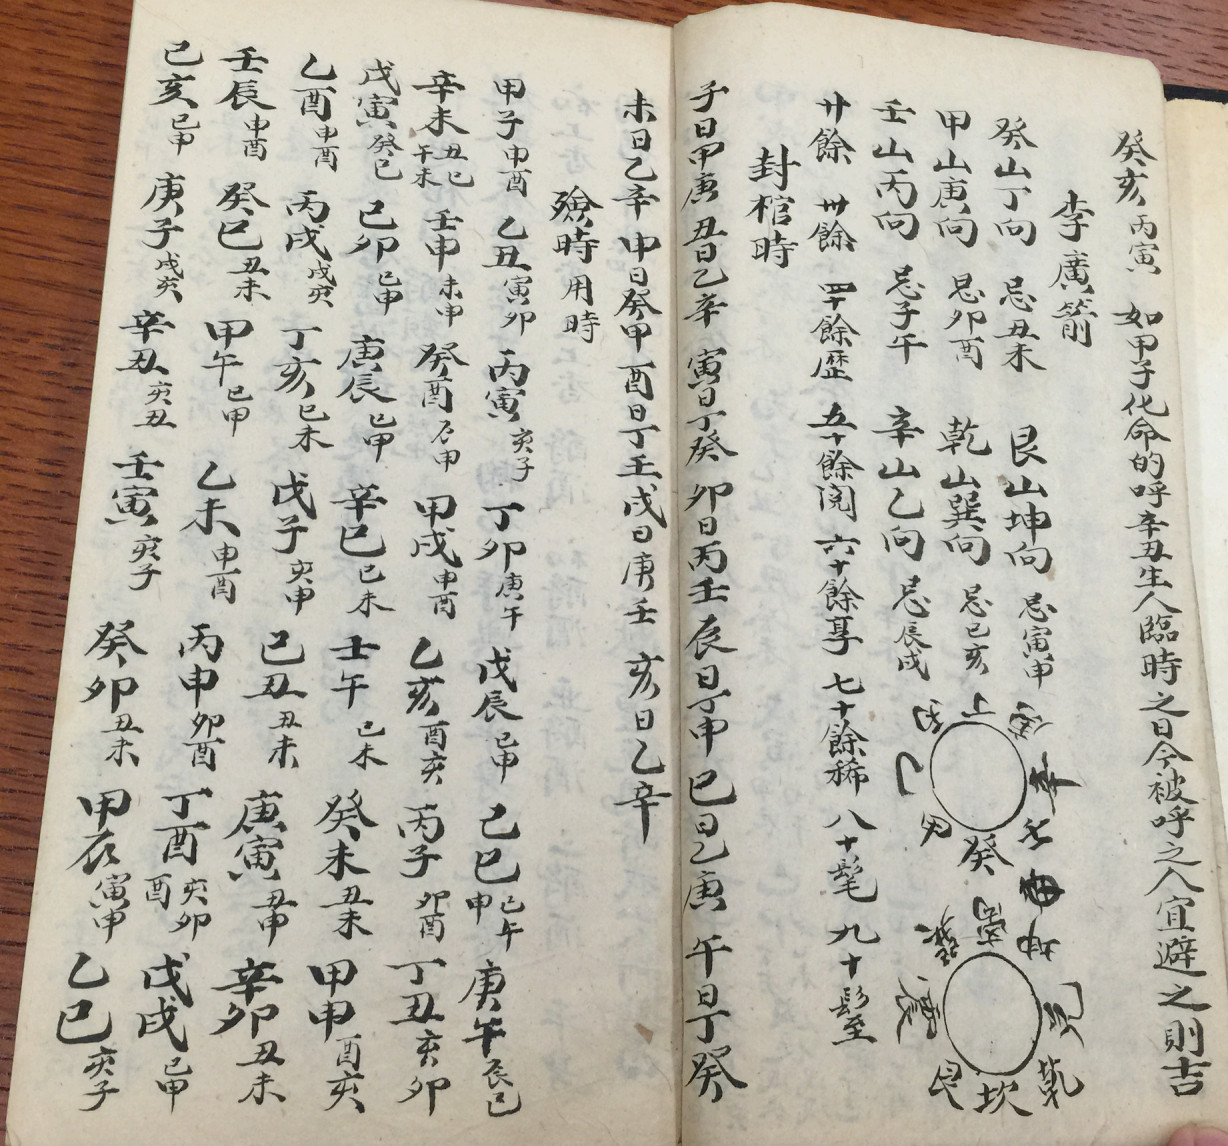 癸亥 丙寅 如甲子化命的呼辛丑生人臨時之日今被呼之人宜避之則吉
李廣箭
癸山丁向 忌丑未 艮山坤向 忌寅申
甲山庚向 忌卯酉 乾山巽向 忌巳亥
壬山丙向 忌子午 辛山乙向 忌辰戌
丁
癸
坎
艮
廿餘 卅餘 四十餘歷 五十餘閱 六十餘享 七十餘稀 八十髦 九十髦
封棺時
子日甲庚 丑日乙辛 寅日丁癸 卯日丙壬 辰日丁甲 巳日乙庚 午日丁癸
未日乙辛 申日癸甲 酉日丁壬 戌日庚壬 亥日乙辛
殮時用時
甲子申酉 乙丑寅卯 丙寅亥子 丁卯庚午 戊辰巳申 己巳申巳午 庚午辰巳
辛未午未丑巳 壬申未申 癸酉辰申 甲戌申酉 乙亥酉亥 丙子卯酉 丁丑亥卯
戊寅癸巳 己卯巳申 庚辰巳申 辛巳巳未 壬午巳未 癸未丑未 甲申酉亥
乙酉申酉 丙戌戌亥 丁亥巳未 戊子亥申 己丑丑未 庚寅丑申 辛卯丑未
壬辰申酉 癸巳丑未 甲午巳申 乙未申酉 丙申卯酉 丁酉酉亥卯 戊戌巳申
己亥巳申 庚子戌亥 辛丑亥丑 壬寅亥子 癸卯丑未 甲辰寅申 乙巳亥子